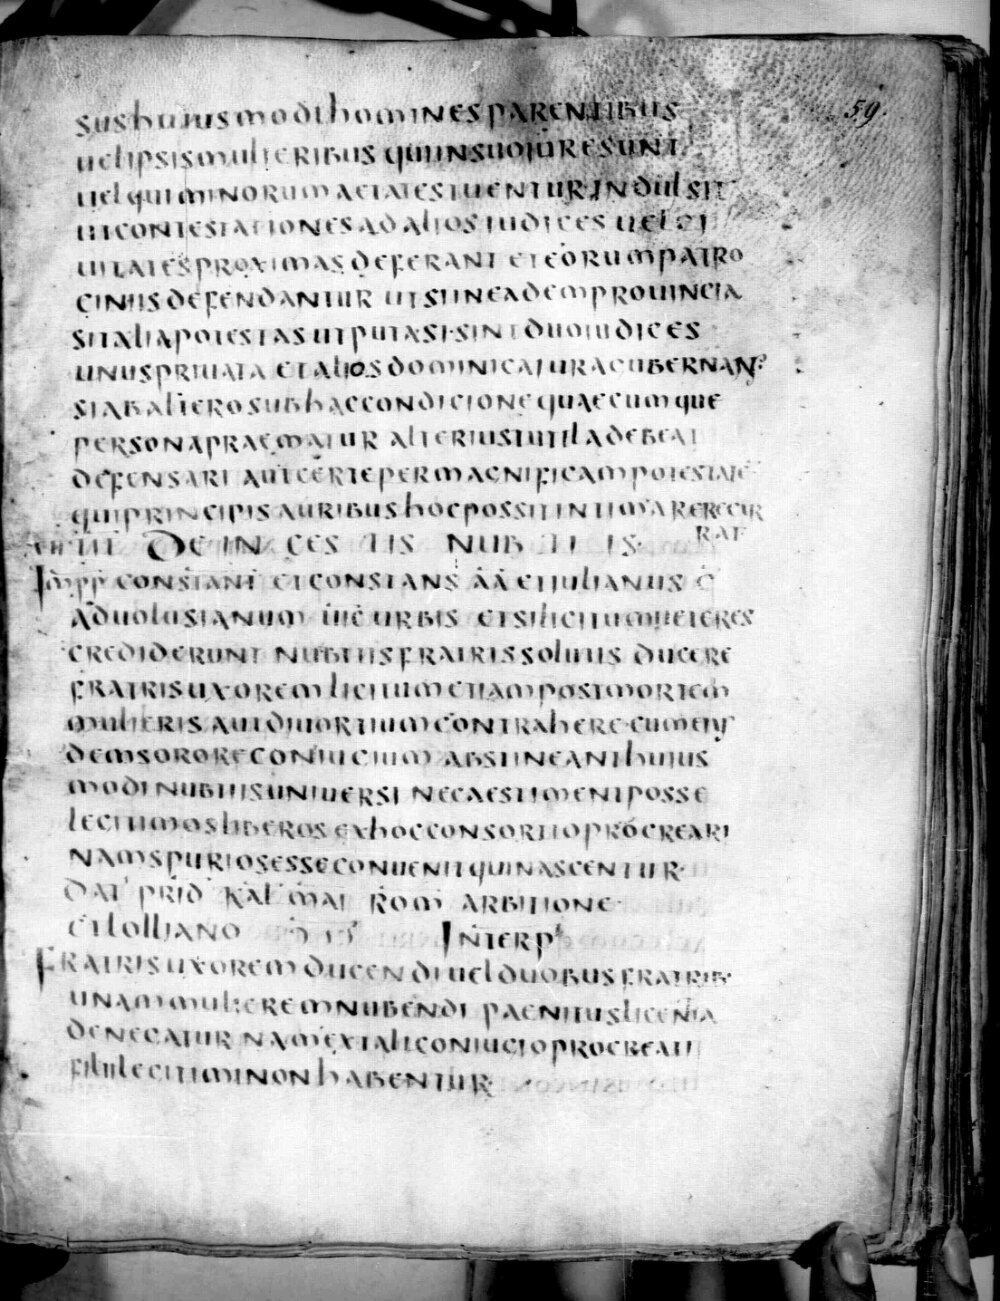 59.
sus huius modi homines parentibus
uel ipsis mulieribus qui in suo iure sunt
uel qui minorum aetates tuentur· indulsit
ut contestationes ad alios iudices uel ci
uitates proximas deferant et eorum patro
ciniis defendantur ut si in eadem prouincia
sit alia potestas ut puta si· sint duo iudices
unus priuata et alios dominica iura cubernan
si ab altero sub hac condicione quaecumque
persona praematur alterius tutila debeat
defensari aut certe per magnificam potestate
qui principis auribus hoc possit intimare recur
rat
De incestis nubtiis·
Impp constant et constans aa et iulianus c
ad uolusianum uic urbis etsi licitum ueteres
crediderunt nubtiis fratris solutis ducere
fratris uxorem licitum etiam post mortem
mulieris aut diuortium contrahere cum eius
dem sorore coniucium abstineant huius
modi nubtiis uniuersi nec aestiment posse
lecitimos liberos ex hoc consortio procreari
nam spurios esse conuenit qui nascentur·
dat prid kal mai rom arbitione·
et lolliano
Interp
Fratris uxorem ducendi uel duobus fratrib·
unam mulierem nubendi paenitus licentia
denecatur nam ex tali coniucio procreati
filii lecitimi non habentur·